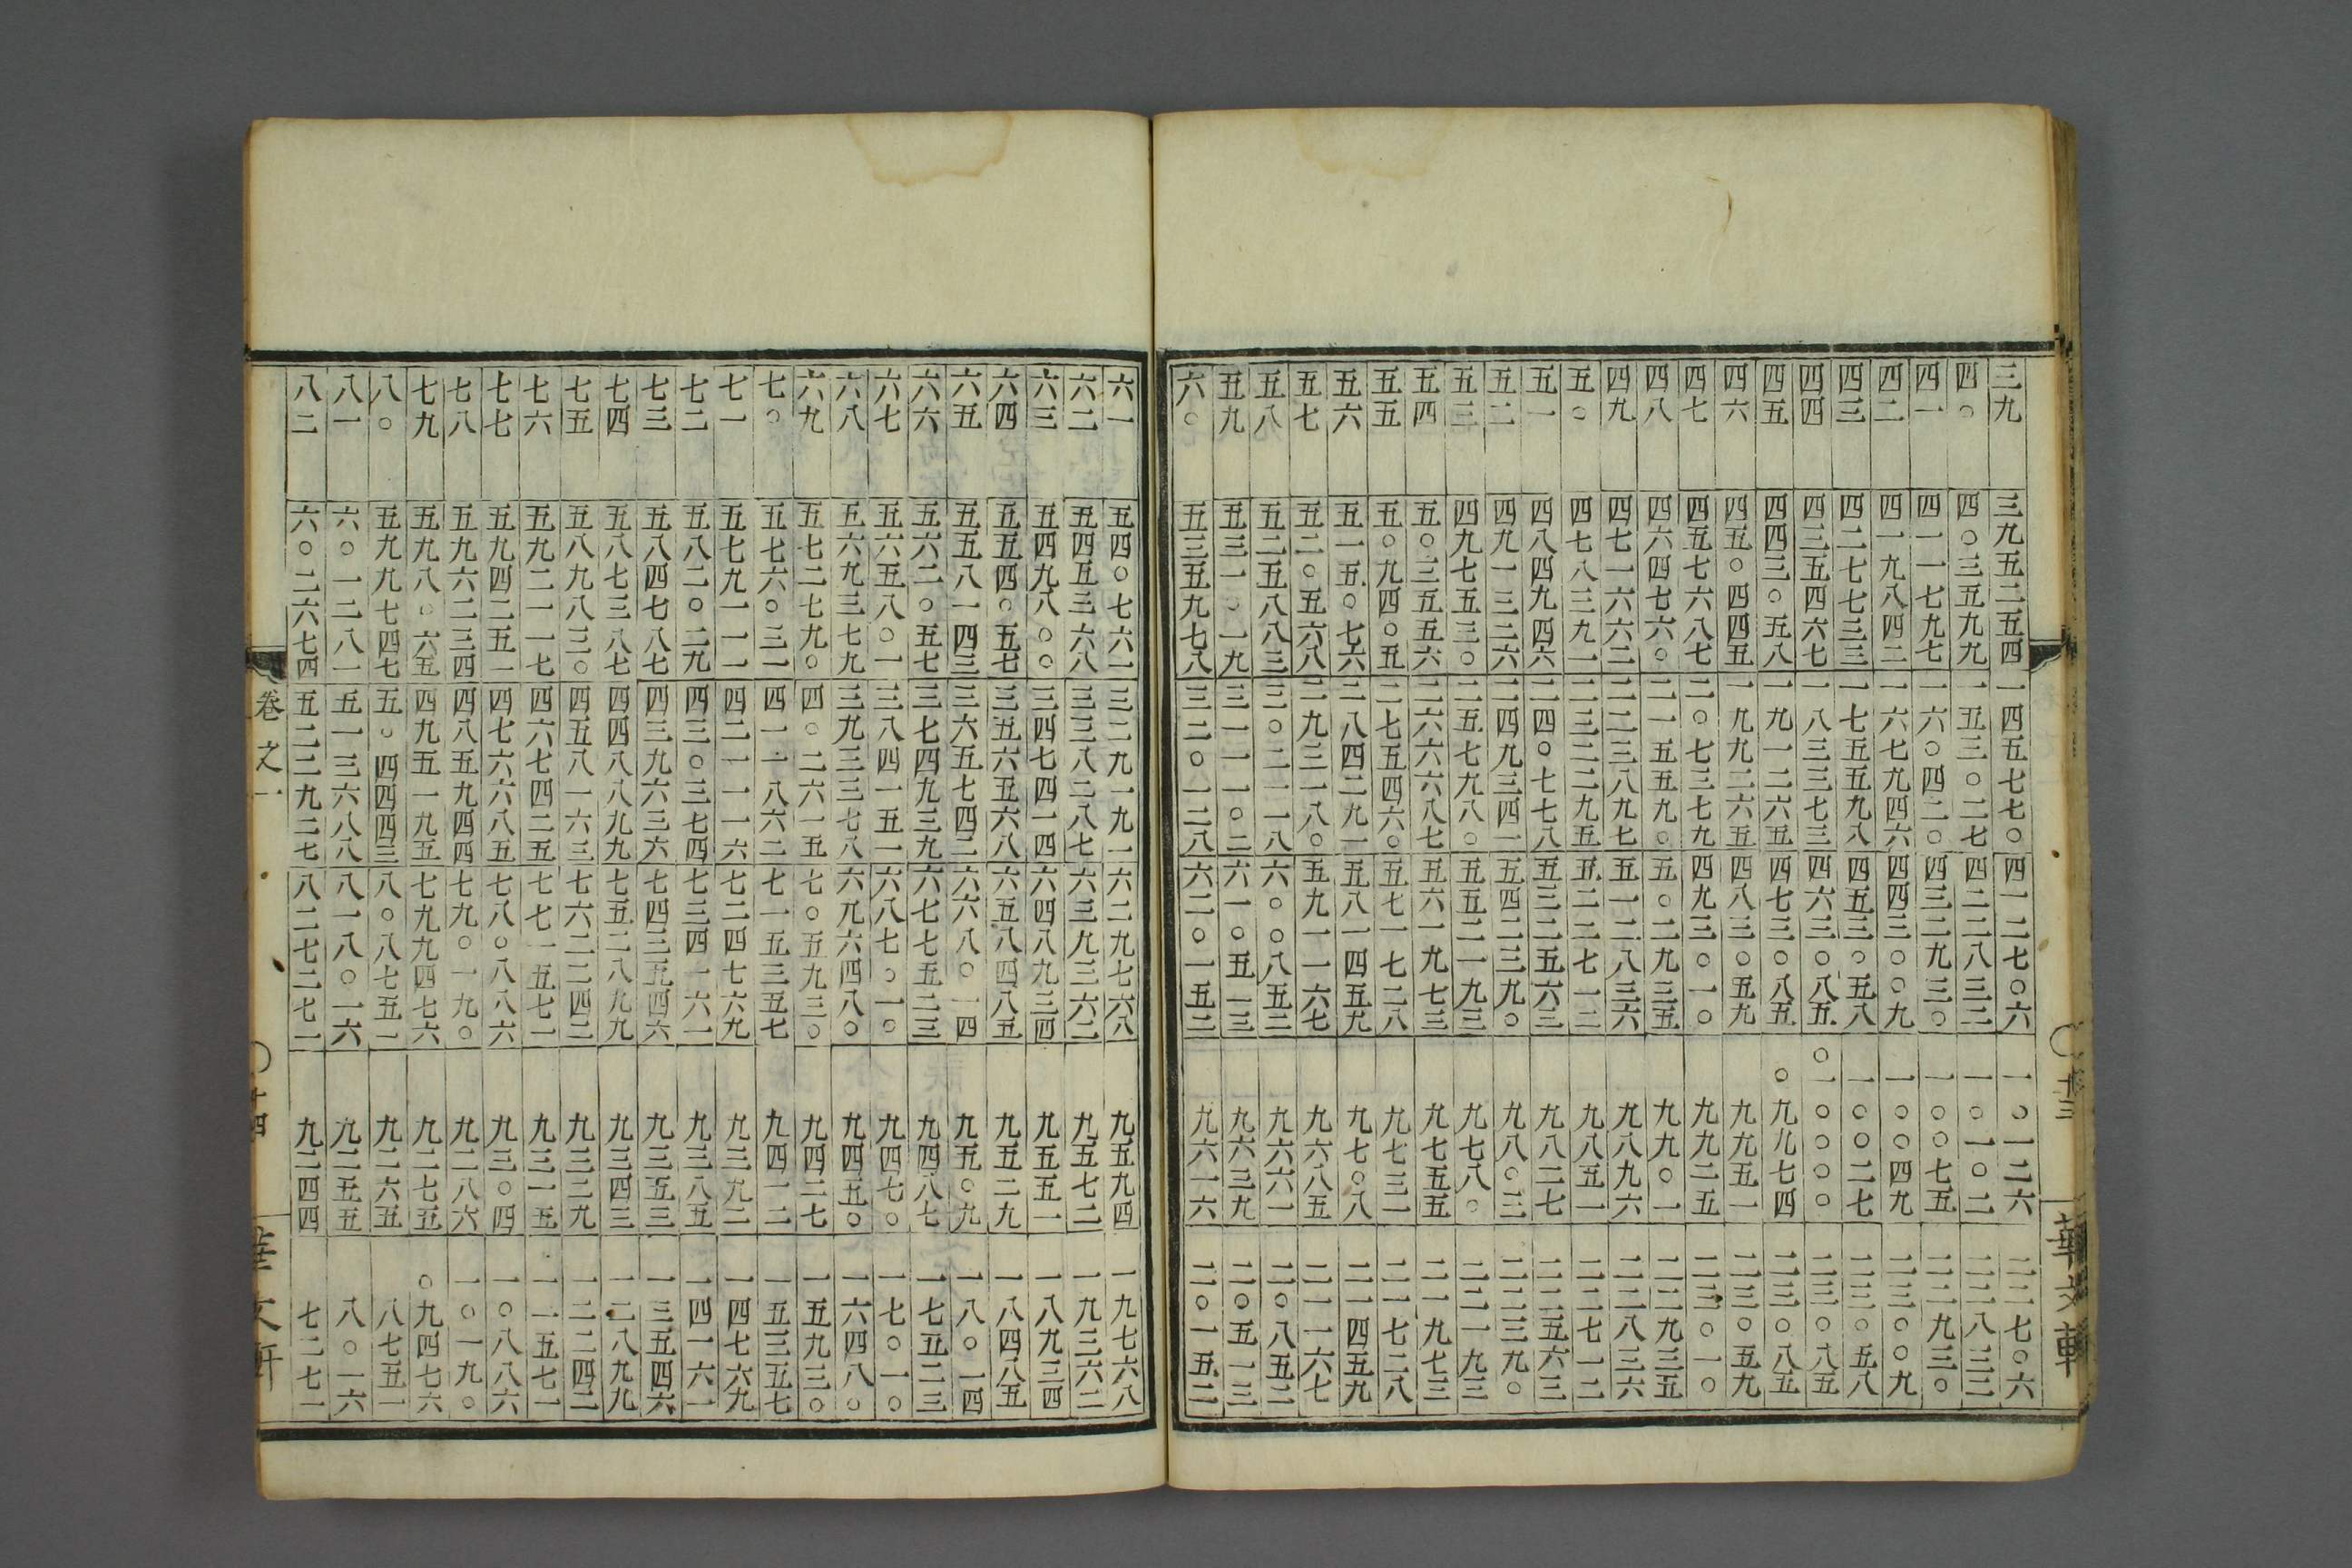 華文軒
三九 三九五二五四 一四五七七〇 四一二七〇六 一〇一二六 二二七〇六
四〇 四〇三五九九 一五三〇二七 四二二八三二 一〇一〇二 二二八三二
四一 四一一七九七 一六〇四二〇 四三二九三〇 一〇〇七五 二二九三〇
四二 四一九八四二 一六七九四六 四四三〇〇九 一〇〇四九 二三〇〇九
四三 四二七七三三 一七五五九八 四五三〇五八 一〇〇二七 二三〇五八
四四 四三五四六七 一八三三七三 四六三〇八五 〇一〇〇〇〇 二三〇八五
四五 四四三〇五八 一九一二六五 四七三〇八五 〇九九七四 二三〇八五
四六 四五〇四四五 一九九二六五 四八三〇五九 九九五一 二三〇五九
四七 四五七六八七 二〇七三七九 四九三〇一〇 九九二五 二三〇一〇
四八 四六四七六〇 二一五五九〇 五〇二九三五 九九〇一 二二九三五
四九 四七一六六二 二二三八九七 五一二八三六 九八九六 二二八三六
五〇 四七八三九一 二三二二九五 五二二七一二 九八五一 二二七一二
五一 四八四九四六 二四〇七七八 五三二五六三 九八二七 二二五六三
五二 四九一三二六 二四九三四二 五四二三九〇 九八〇三 二二三九〇
五三 四九七五三〇 二五七九八〇 五五二一九三 九七八〇 二二一九三
五四 五〇三五五六 二六六六八七 五六一九七三 九七五五 二一九七三
五五 五〇九四〇五 二七五四六〇 五七一七二八 九七三一 二一七二八
五六 五一五〇七六 二八四二九一 五八一四五九 九七〇八 二一四五九
五七 五二〇五六八 二九三一八〇 五九一一六七 九六八五 二一一六七
五八 五二五八八三 三〇二一一八 六〇〇八五二 九六六一 二〇八五二
五九 五三一〇一九 三一一一〇二 六一〇五一三 九六三九 二〇五一三
六〇 五三五九七八 三二〇一二八 六二〇一五二 九六一六 二〇一五二
六一 五四〇七六一 三二九一九一 六二九七六八 九五九四 一九七六八
六二 五四五三六八 三三八二八七 六三九三六二 九五七二 一九三六二
六三 五四九八〇〇 三四七四一四 六四八九三四 九五五一 一八九三四
六四 五五四〇五七 三五六五六八 六五八四八五 九五二九 一八四八五
六五 五五八一四三 三六五七四二 六六八〇一四 九五〇九 一八〇一四
六六 五六二〇五七 三七四九三九 六七七五二三 九四八七 一七五二三
六七 五六五八〇一 三八四一五一 六八七〇一〇 九四七〇 一七〇一〇
六八 五六九三七九 三九三三七八 六九六四八〇 九四五〇 一六四八〇
六九 五七二七九〇 四〇二六一五 七〇五九三〇 九四二七 一五九三〇
七〇 五七六〇三一 四一一八六二 七一五三五七 九四一二 一五三五七
七一 五七九一一一 四二一一一六 七二四七六九 九三九二 一四七六九
七二 五八二〇二九 四三〇三七四 七三四一六一 九三八五 一四一六一
七三 五八四七八七 四三九六三六 七四三五四六 九三五三 一三五四六
七四 五八七三八七 四四八八九九 七五二八九九 九三四三 一二八九九
七五 五八九八三〇 四五八一六三 七六二二四二 九三二九 一二二四二
七六 五九二一一七 四六七四二五 七七一五七一 九三一五 一一五七一
七七 五九四二五一 四七六六八五 七八〇八八六 九三〇四 一〇八八六
七八 五九六二三四 四八五九四四 七九〇一九〇 九二八六 一〇一九〇
七九 五九八〇六五 四九五一九五 七九九四七六 九二七五 〇九四七六
八〇 五九九七四七 五〇四四四三 八〇八七五一 九二六五 八七五一
八一 六〇一二八一 五一三六八八 八一八〇一六 九二五五 八〇一六
八二 六〇二六七四 五二二九二七 八二七二七一 九二四四 七二七一
卷之一 〇 廿四 華文軒